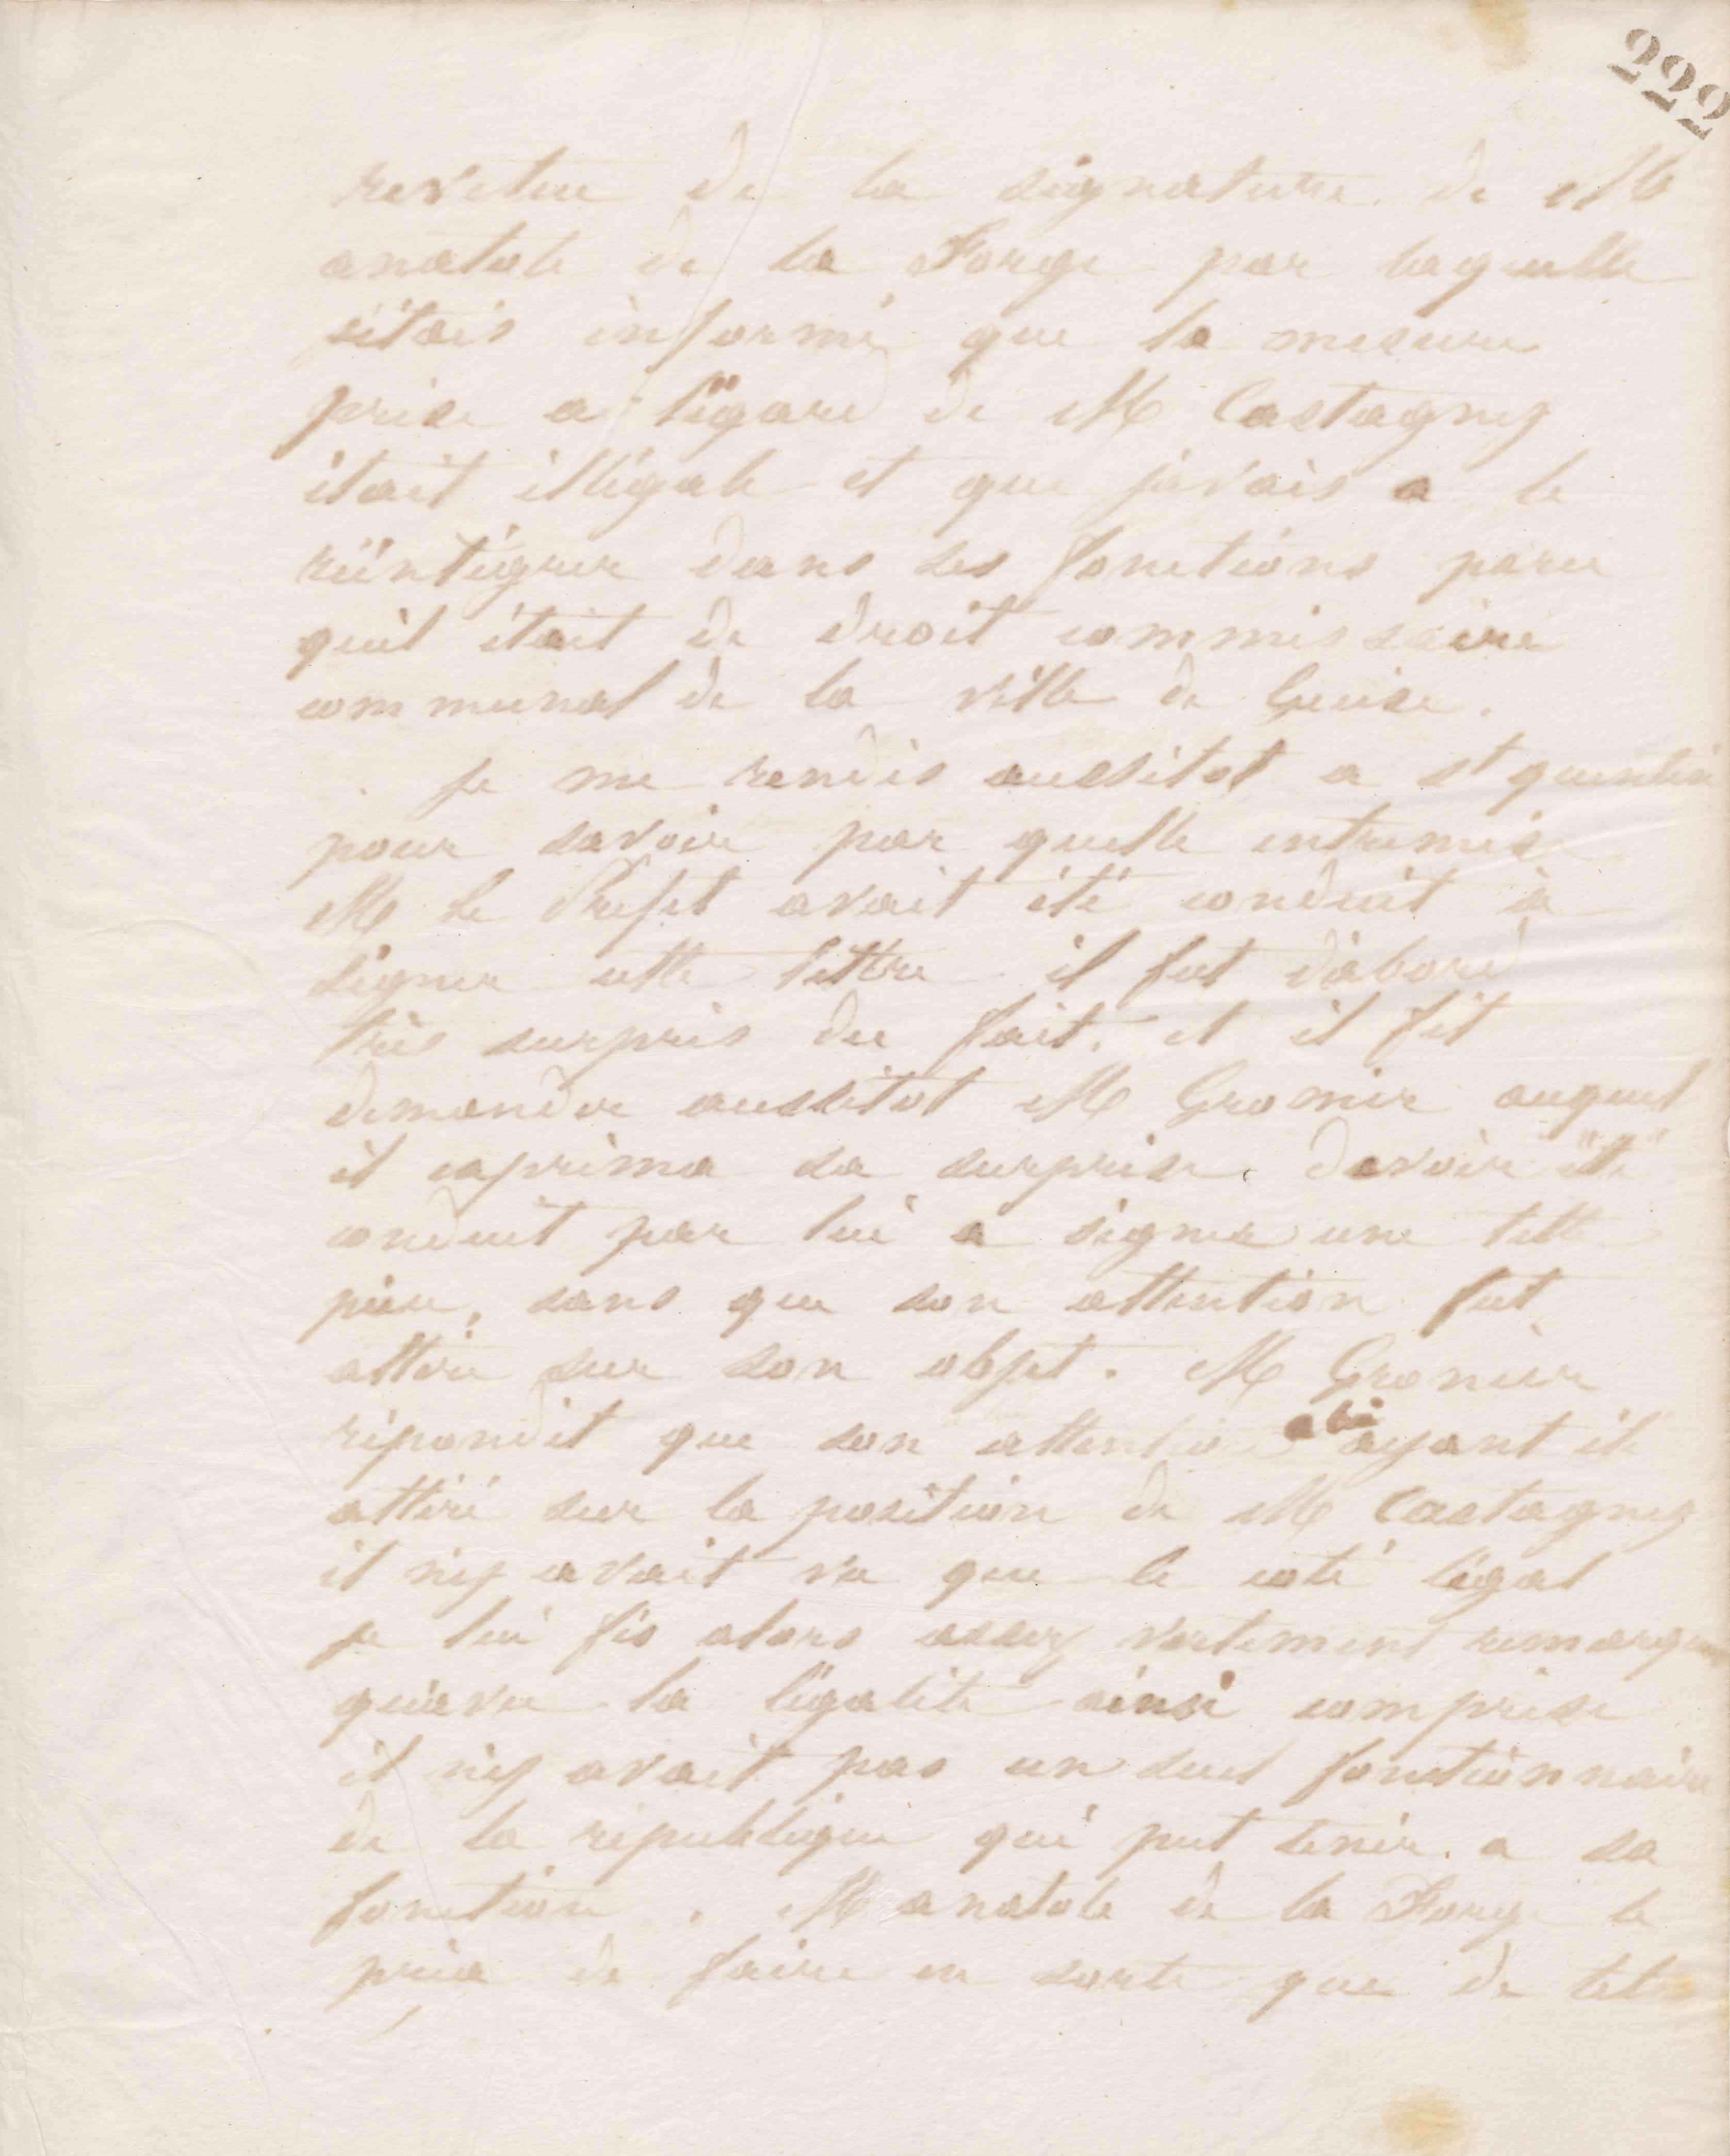 222
revetue de la signature de M
anatole de la Forge par laquelle
j'étais informé que la mesure
prise a légard de M Castagnez
était illégale et que j'avais a le
réintégrer dans ses fonctions parce
quil était de droit commissaire
communal de la ville de Guise.
je me rendis aussitot a st quentin
pour savoir par quelle entremise
M le Prefet avait été conduit à
signer cette lettre il fut d'abord
très surpris du fait. et il fit
demander aussitot M Gronier auquel
il exprima sa surprise davoir été
conduit par lui a signer une telle
pièce, sans que son attention fut
attirée sur son objet. M Gronier
répondit que son attention a lui ayant été
attiré sur la position de M Castagnez
il n'y avait vu que le coté légal
je lui fis alors assez vertement remarquer
qu'avec la légalité ainsi comprise
il n'y avait pas un seul fonctionnaire
de la république qui put tenir a sa
fonction. M anatole de la Forge le
pria de faire en sorte que de tels